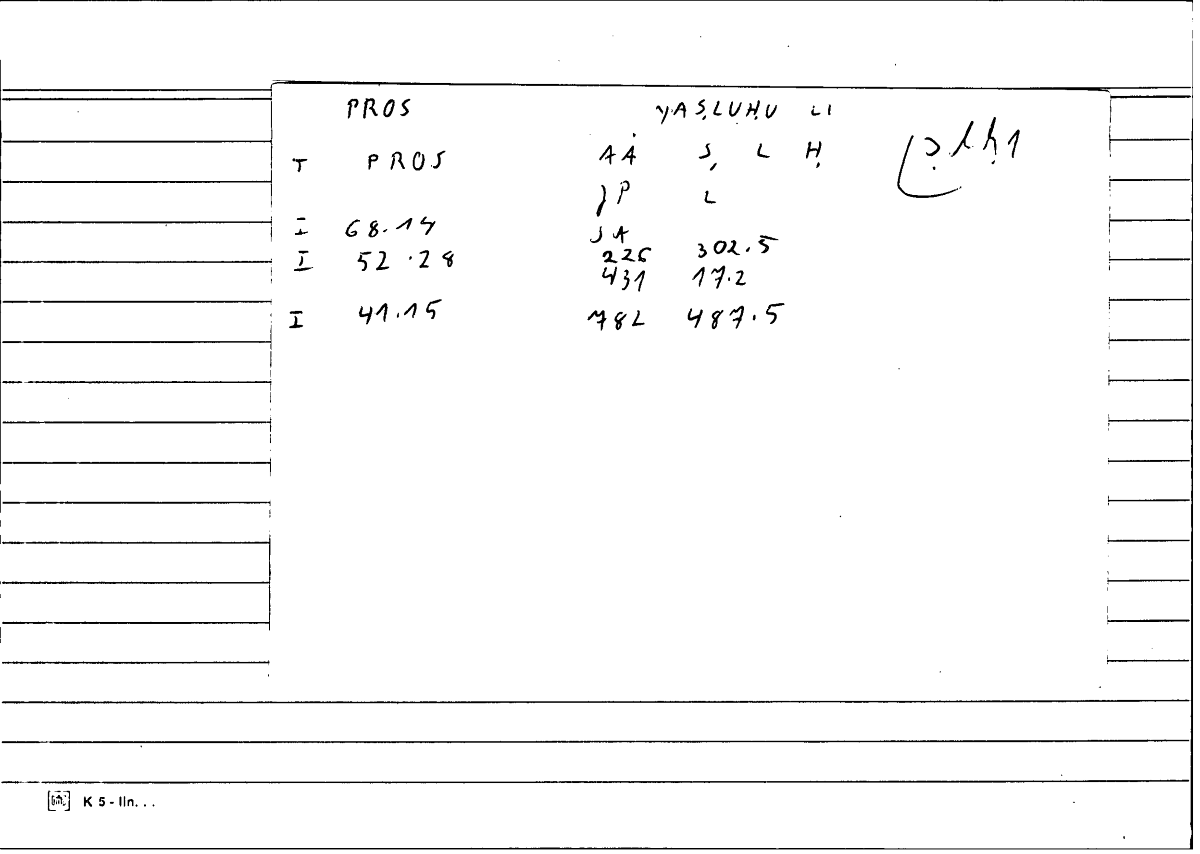 PROS YAṢLUḤU LI
T PROS AȦ Ṣ L Ḥ ṣlḥ1
JP L
I 68.14 JA
I 52.28 226 302.5
431 17.2
I 41.15 782 487.5
K 5 - IIn. . .